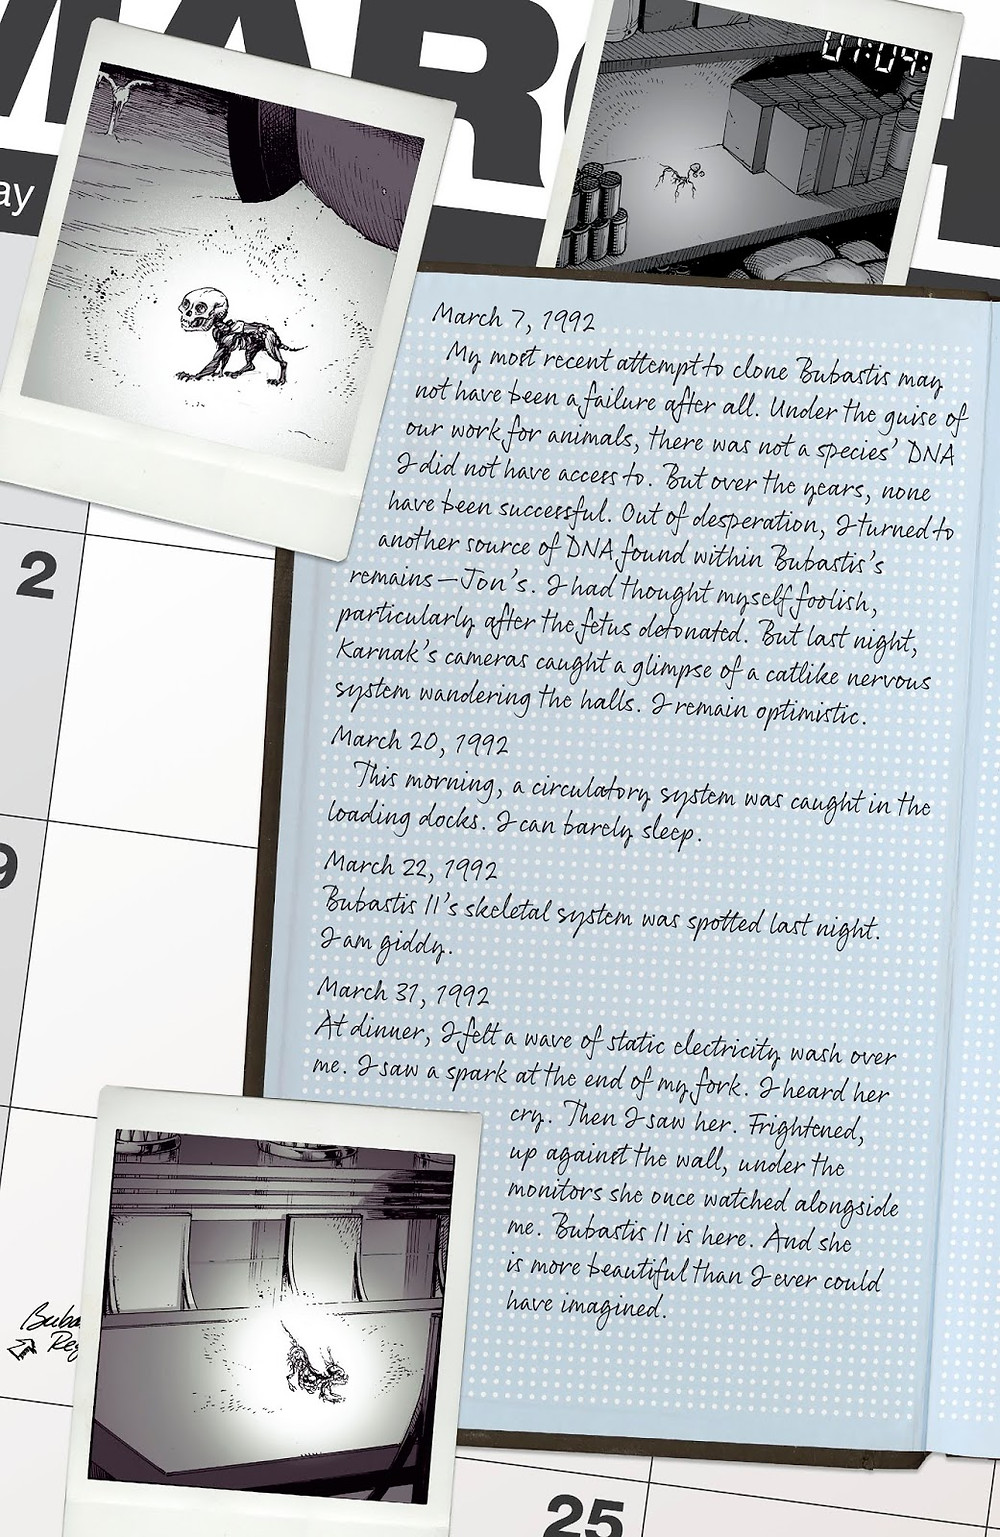 MAR
H
ay
07:09:
2
9
25
March 7, 1992
My most recent attempt to clone Bubastis may
not have been a failure after all. Under the guise of
our work for animals, there was not a species' DNA
I did not have access to. But over the years, none
have been successful. Out of desperation, I turned to
another source of DNA found within Bubastis's
remains—Jon's. I had thought myself foolish,
particularly after the fetus detonated. But last night,
Karnak's cameras caught a glimpse of a catlike nervous
system wandering the halls. I remain optimistic.
March 20, 1992
This morning, a circulatory system was caught in the
loading docks. I can barely sleep.
March 22, 1992
Bubastis II's skeletal system was spotted last night.
I am giddy.
March 31, 1992
At dinner, I felt a wave of static electricity wash over
me. I saw a spark at the end of my fork. I heard her
cry. Then I saw her. Frightened,
up against the wall, under the
monitors she once watched alongside
me. Bubastis II is here. And she
is more beautiful than I ever could
have imagined.